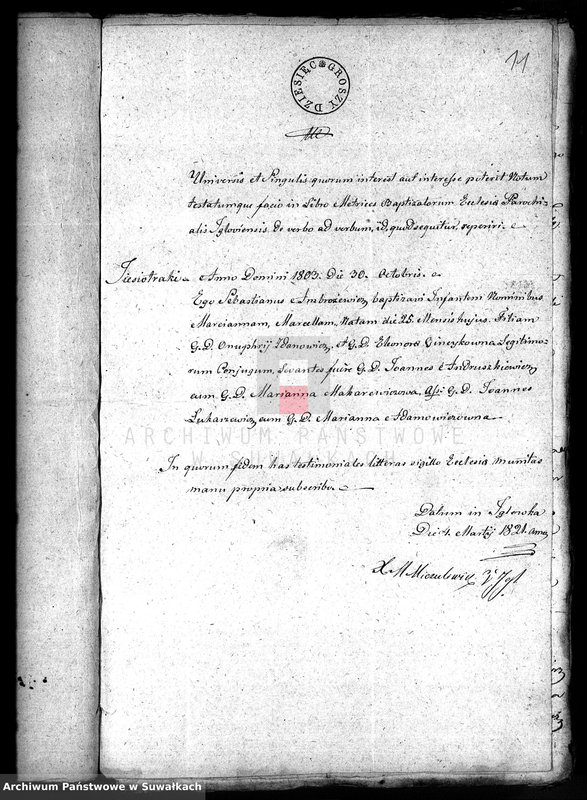 11
DZIESIĘC GROSZY
Universis et Singulis quorum interest aut interesse poterit Notum
testatumque facio in Libro Metrices Baptizatorum Ecclesiæ Parochi-
alis Igloviensis de verbo ad verbum, id, quod sequitur, reperiri.
Jiesiotraki Anno Domini 1803. Die 30. Octobris.
Ego Sebastianus Ambrożewicz baptizavi Infantem Nominibus
Mariannam, Marcellam, Natam die 25. Mensis hujus. Filiam
G.D. Onuphrij Zdanowicz, et G.D. Eleonora Vinczykowna Legitimo-
rum Conjugum, Levantes fuere G.D. Joannes Andruszkiewicz
cum G.D. Marianna Makarewiczowa. Ass: G.D. Joannes
Łukaszewicz cum G.D. Marianna Adamowiczowna
In quorum fidem has testimoniales litteras sigillo Ecclesiæ munitas
manu propria subscribo.
Datum in Iglowka
Die 4. Martij 1821. anno
X M Miczulewicz
ARCHIWUM PAŃSTWOWE
W SUWAŁKACH
Archiwum Państwowe w Suwałkach